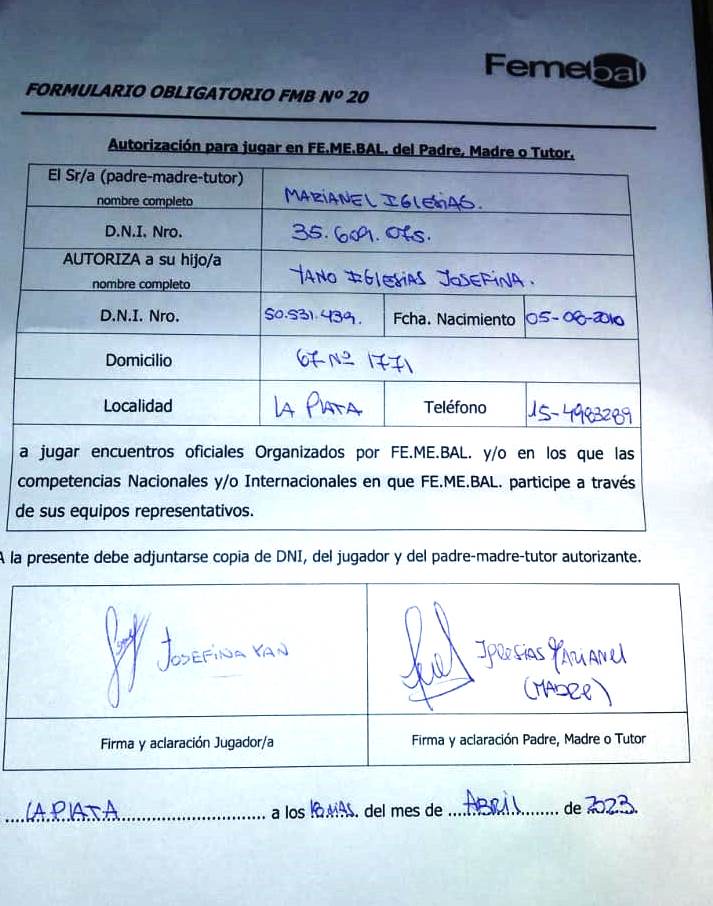 Femebal
FORMULARIO OBLIGATORIO FMB Nº 20
Autorización para jugar en FE.ME.BAL. del Padre, Madre o Tutor.
El Sr/a (padre-madre-tutor)
nombre completo
MARIANEL IGLESIAS.
D.N.I. Nro.
35.609.075.
AUTORIZA a su hijo/a
nombre completo
YANO IGLESIAS JOSEFINA.
D.N.I. Nro.
50.531.439.
Fcha. Nacimiento
05-08-2010
Domicilio
67 Nº 1771
Localidad
LA PLATA
Teléfono
15-4983289
a jugar encuentros oficiales Organizados por FE.ME.BAL. y/o en los que las
competencias Nacionales y/o Internacionales en que FE.ME.BAL. participe a través
de sus equipos representativos.
A la presente debe adjuntarse copia de DNI, del jugador y del padre-madre-tutor autorizante.
JOSEFINA YAN
IGLESIAS MARIANEL
(MADRE)
Firma y aclaración Jugador/a
Firma y aclaración Padre, Madre o Tutor
LA PLATA a los 18 DIAS. del mes de ABRIL de 2023.